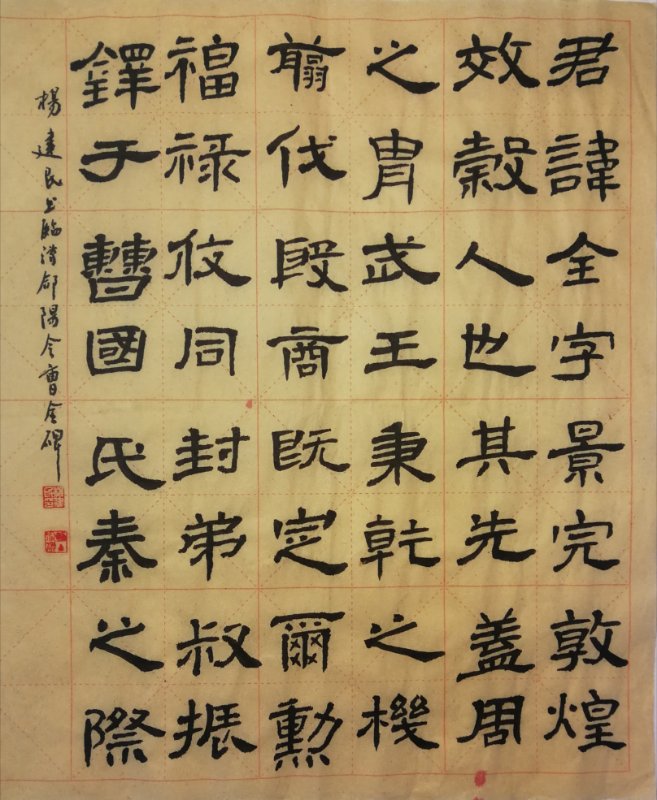 君諱全字景完敦煌
效穀人也其先盖周
之胄武王秉乾之機
翦伐殷商既定爾勳
福禄攸同封弟叔振
鐸于曹國氏秦之際
楊建民书臨漢郃陽令曹全碑